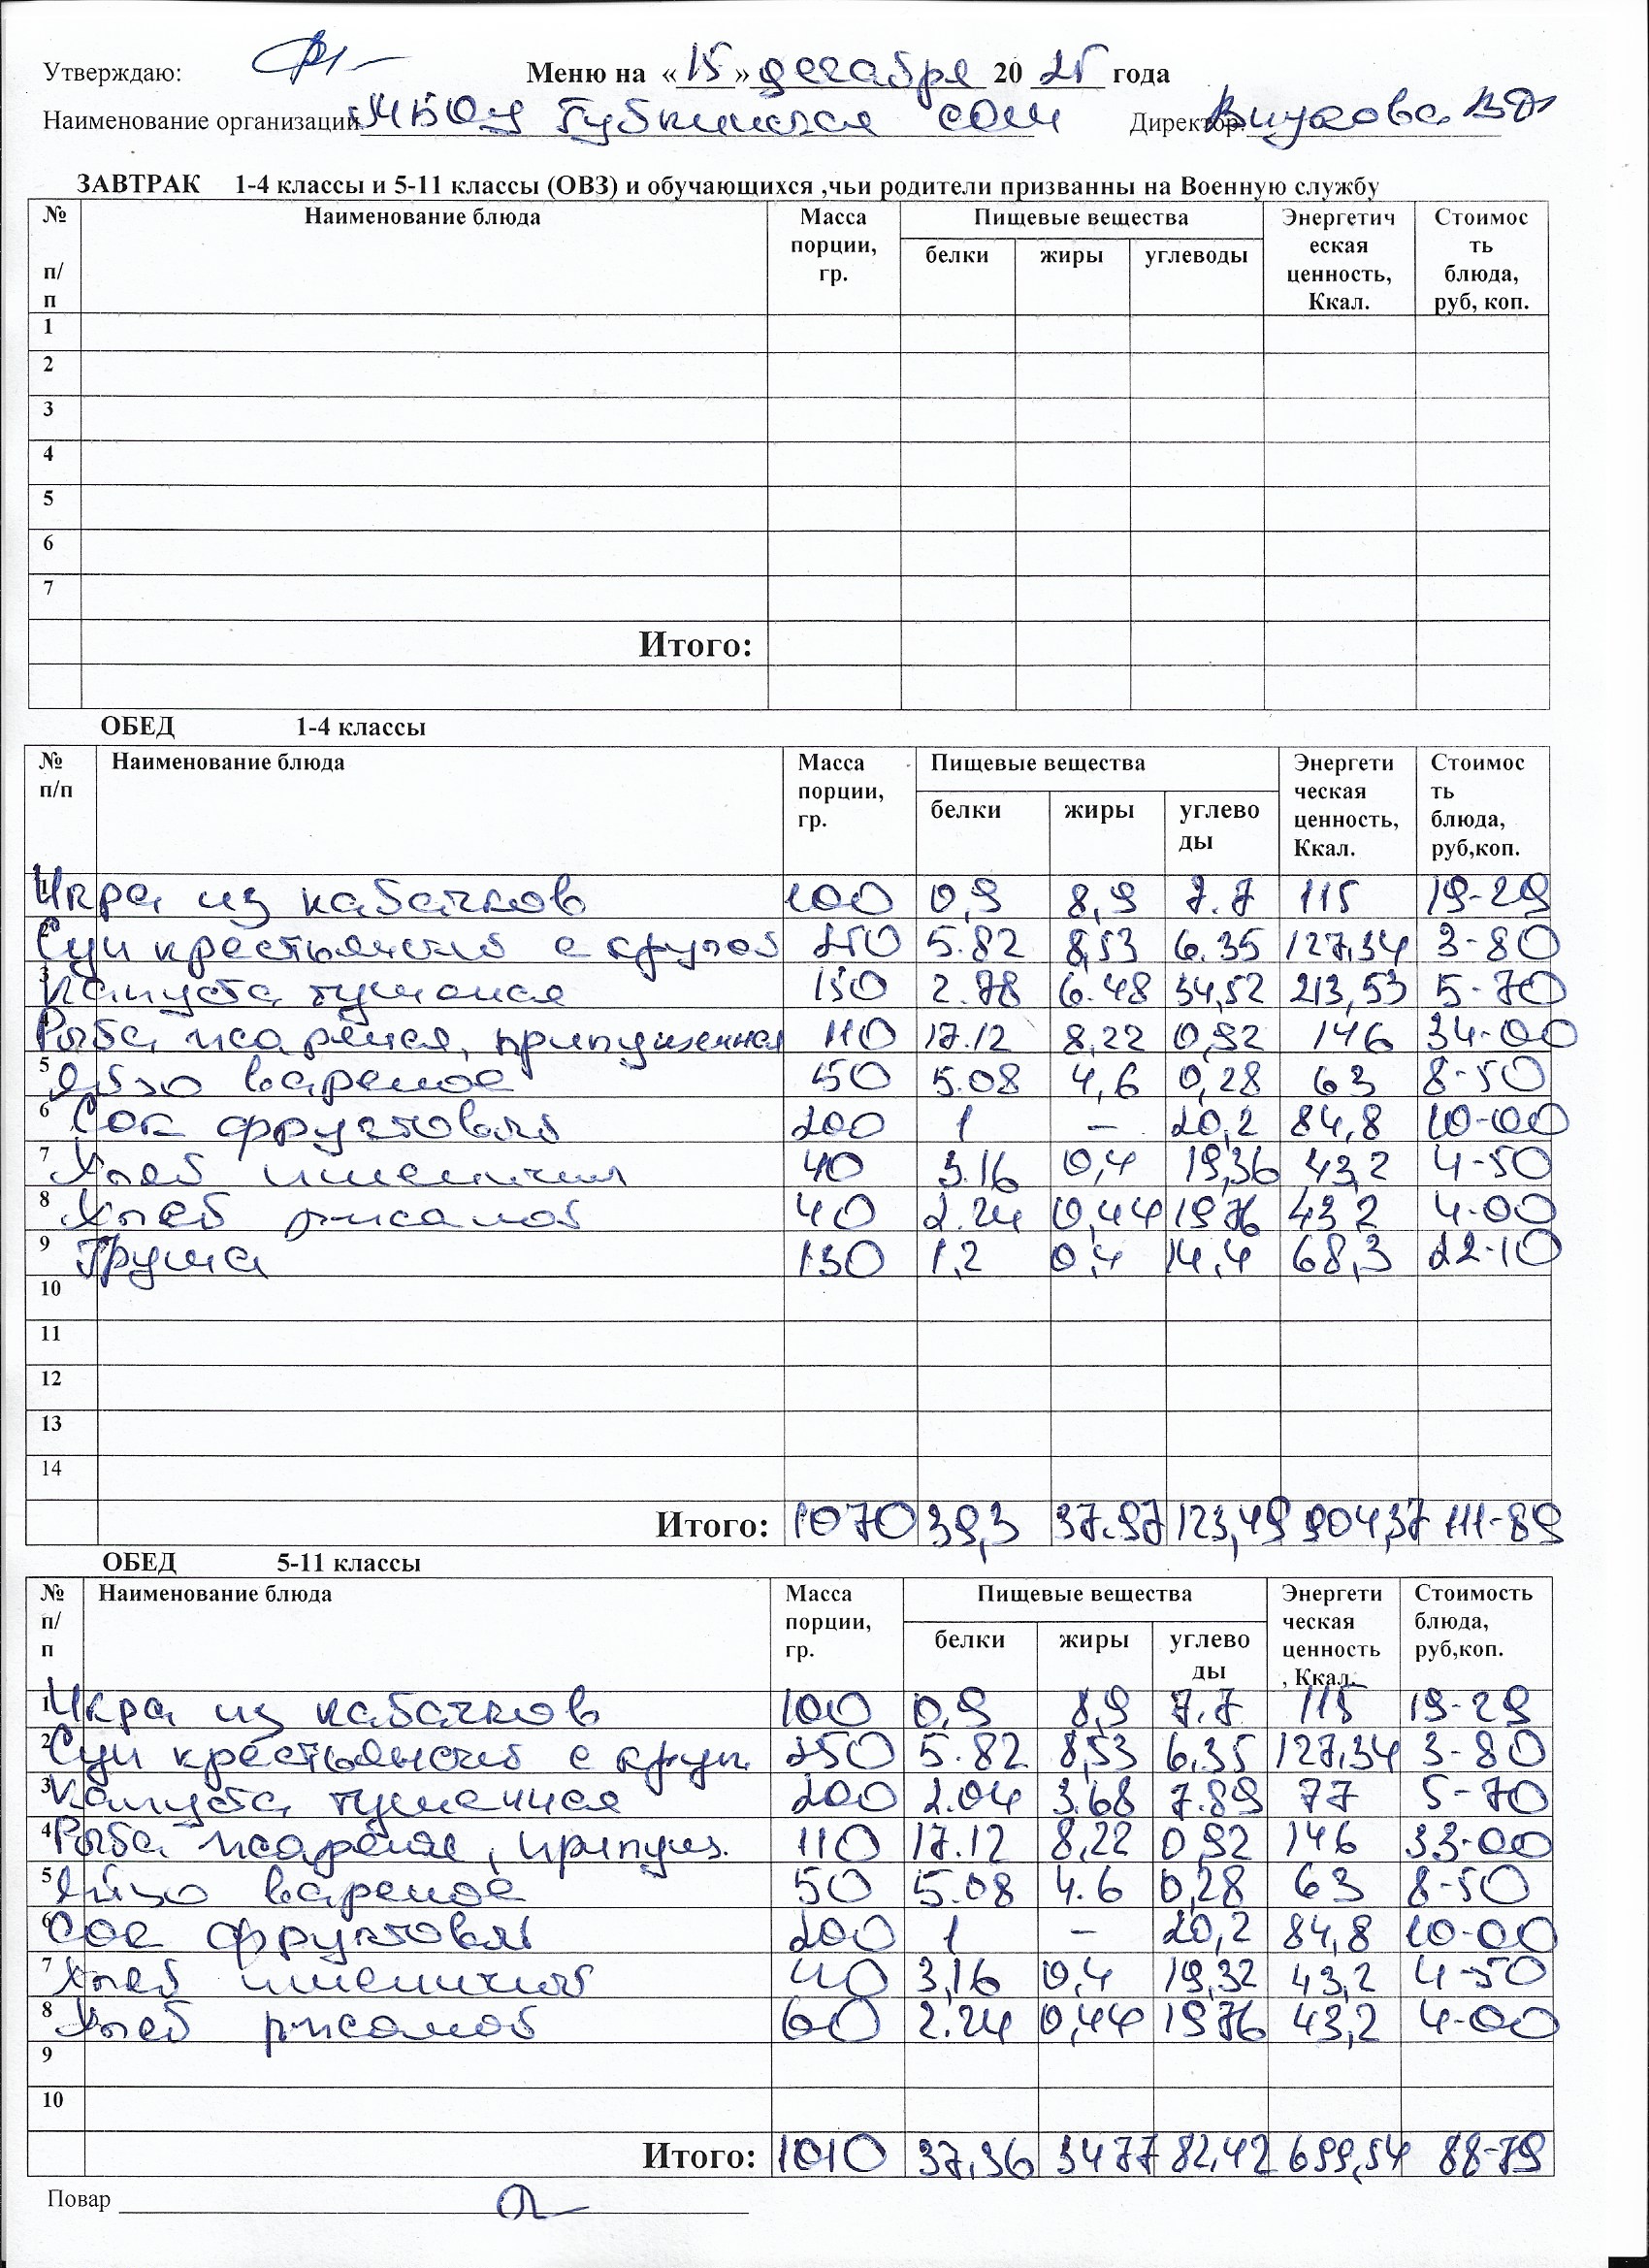 Утверждаю: Меню на «15» декабря 2025 года
Наименование организации МБОУ Губкинская СОШ Директор: Внукова
ЗАВТРАК 1-4 классы и 5-11 классы (ОВЗ) и обучающихся ,чьи родители призванны на Военную службу
№ п/п Наименование блюда Масса порции, гр. Пищевые вещества Энергетическая ценность, Ккал. Стоимость блюда, руб, коп.
белки жиры углеводы
1
2
3
4
5
6
7
Итого:
ОБЕД 1-4 классы
№ п/п Наименование блюда Масса порции, гр. Пищевые вещества Энергетическая ценность, Ккал. Стоимость блюда, руб,коп.
белки жиры углеводы
1 Икра из кабачков 100 0,9 8,9 7.7 115 19-29
2 Суп крестьянский с крупой 250 5.82 8,53 6.35 127,34 3-80
3 Капуста тушеная 150 2.78 6.48 34,52 213,53 5-70
4 Рыба жареная, припущенная 110 17.12 8,22 0,92 146 34-00
5 Яйцо вареное 50 5.08 4,6 0,28 63 8-50
6 Сок фруктовый 200 1 – 20,2 84,8 10-00
7 Хлеб пшеничный 40 3.16 0,4 19,36 43,2 4-50
8 Хлеб ржаной 40 2.24 0,44 1976 43,2 4-00
9 Груша 130 1,2 0,4 14,4 68,3 22-10
10
11
12
13
14
Итого: 1070 39,3 37.97 123,49 904,37 111-89
ОБЕД 5-11 классы
№ п/п Наименование блюда Масса порции, гр. Пищевые вещества Энергетическая ценность, Ккал. Стоимость блюда, руб,коп.
белки жиры углеводы
1 Икра из кабачков 100 0,9 8,9 7.7 115 19-29
2 Суп крестьянский с круп. 250 5.82 8,53 6,35 127,34 3-80
3 Капуста тушеная 200 2.04 3.68 7.89 77 5-70
4 Рыба жареная, припущ. 110 17.12 8,22 0,92 146 33-00
5 Яйцо вареное 50 5.08 4.6 0,28 63 8-50
6 Сок фруктовый 200 1 – 20,2 84,8 10-00
7 Хлеб пшеничной 40 3,16 0,4 19,32 43,2 4-50
8 Хлеб ржаной 60 2.24 0,44 1976 43,2 4-00
9
10
Итого: 1010 37,36 3477 82,42 699,54 88-79
Повар